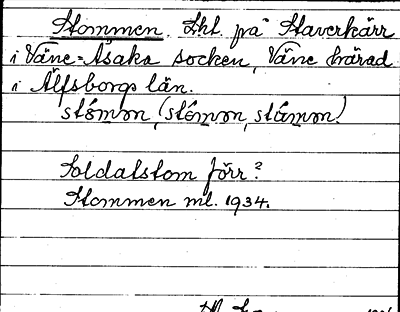 Stommen. Lht. på Staverkärr
i Väne-Åsaka socken, Väne härad
i Älfsborgs län.
stómən (stômən, stũmən)
Soldatstom förr?
Stommen ml. 1934.